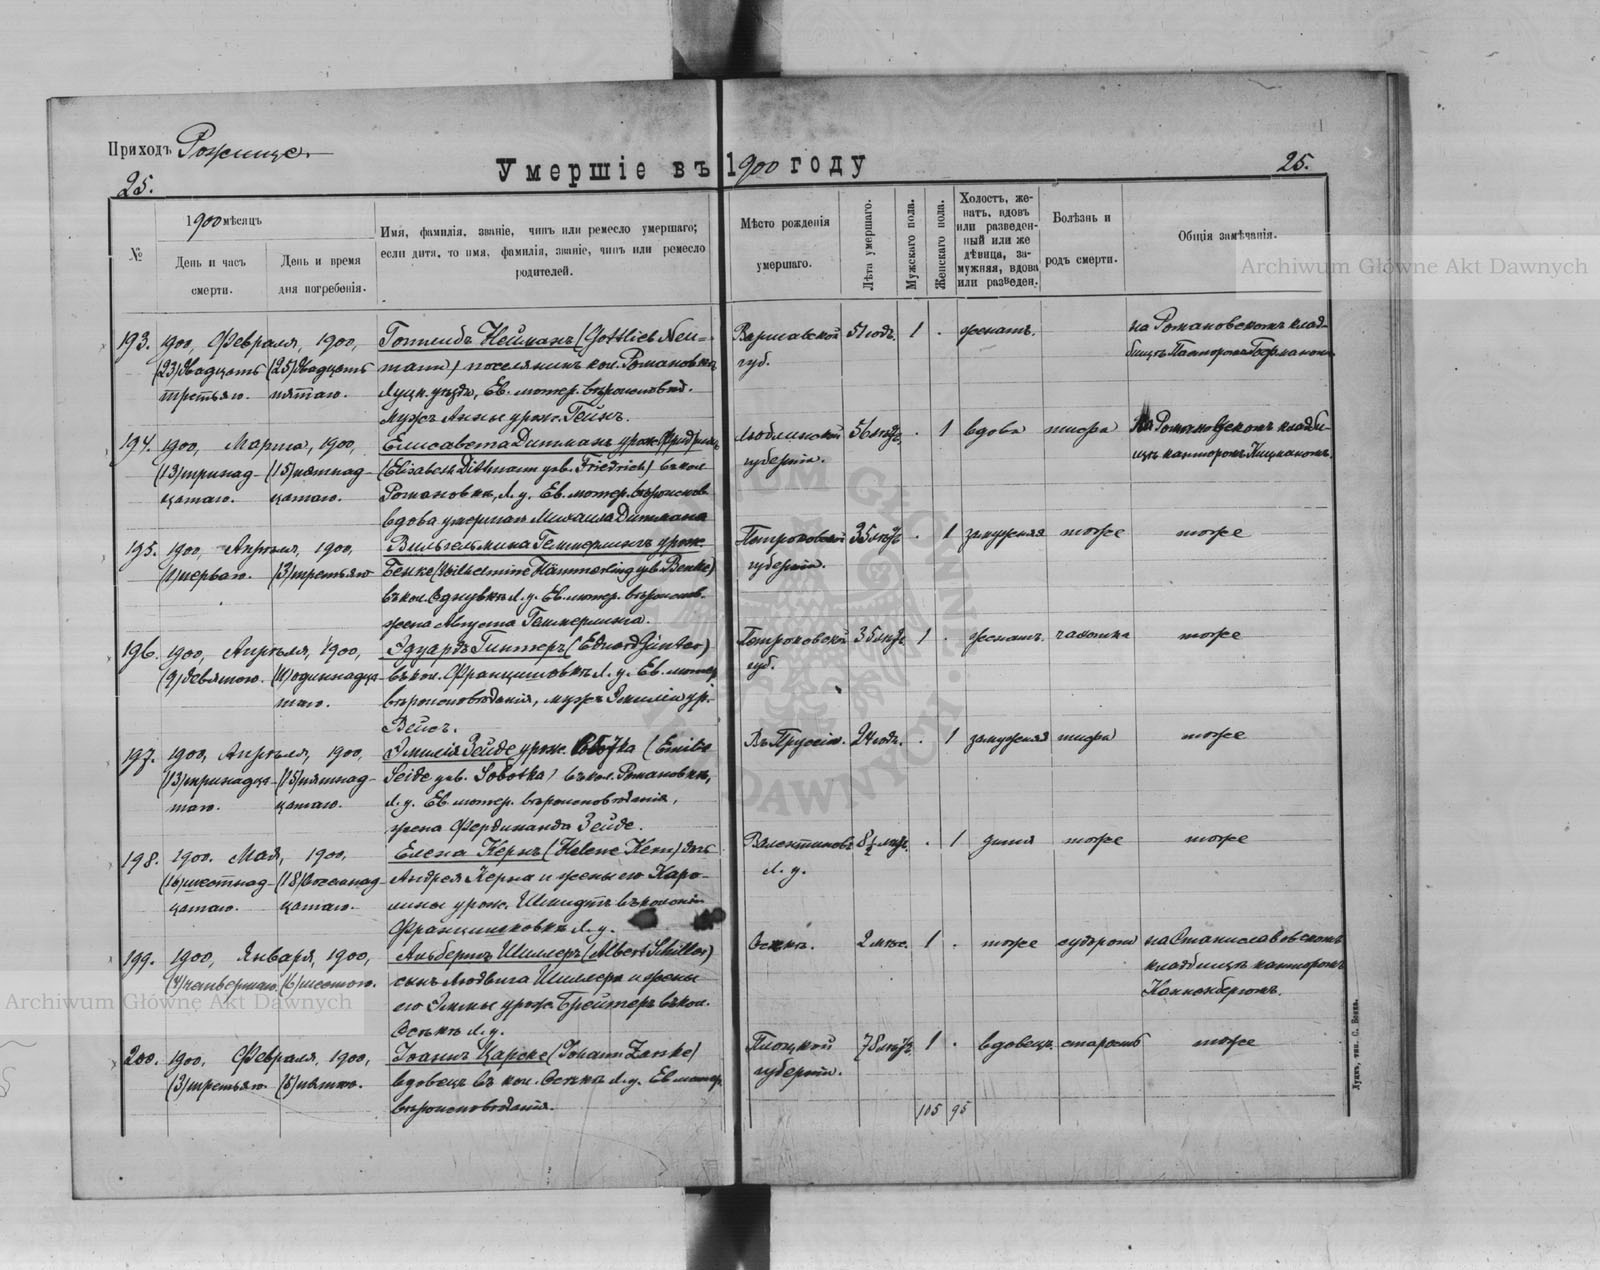 Приходъ Рожище.
Умершіе въ 1900 году
25.
25.
№
1900 мѣсяцъ
День и часъ
смерти.
День и время
дня погребенія.
Имя, фамилія, званіе, чинъ или ремесло умершаго;
если дитя, то имя, фамилія, званіе, чинъ или ремесло
родителей.
Мѣсто рожденія
умершаго.
Лѣта умершаго.
Мужскаго пола.
Женскаго пола.
Холостъ, же-
натъ, вдовъ
или разведен-
ный или же
дѣвица, за-
мужняя, вдова
или разведен.
Болѣзнь и
родъ смерти.
Общія замѣчанія.
193. 1900, Февраля, 1900, Готлибъ Нейманъ (Gottlieb Neu- Варшавской 51 годъ. 1 . женатъ. на Романовскомъ клад-
(23) двадцать (25) двадцать mann) поселянинъ кол. Романовка губ. бищѣ Пасторомъ
третьяго. пятаго. Луцк. уѣзда, Ев. лютер. вѣроисповѣд.
мужъ Анны урож. Гейнъ.
194. 1900, Марта, 1900, Елисавета Дитманъ урож. Фридрихъ Люблинской 56 лѣтъ . 1 вдова тифа На Романовскомъ кладби-
(13) тринад- (15) пятнад- (Elisabeth Dittmann geb. Friedrich) въ кол. губерніи. щѣ канторомъ
цатаго. цатаго. Романовкѣ, Л. у. Ев. лютер. вѣроисповѣд.
вдова умершаго Михаила Дитмана
195. 1900, Апрѣля, 1900, Вильгельмина Геммерлингъ урож. Петроковской 35 лѣтъ . 1 замужняя тоже тоже
(1) перваго. (3) третьяго Бенке (Wilhelmine Hämmerling geb. Benke) губерніи.
въ кол. Л. у. Ев. лютер. вѣроиспов.
жена Августа Геммерлинга.
196. 1900, Апрѣля, 1900, Эдуардъ Гинтеръ (Eduard Günter) Петроковской 35 лѣтъ 1 . женатъ. чахотка тоже
(9) девятого. (11) одиннадца- въ кол. Францишовкѣ Л. у. Ев. лютер. губ.
таго. вѣроисповѣданія, мужъ Эмиліи ур.
Вейсъ.
197. 1900, Апрѣля, 1900, Эмилія Зейде урож. Соботка (Emilie Въ Пруссіи. 24 года. . 1 замужняя тифа тоже
(13) тринадца- (15) пятнад- Seide geb. Sobotka) въ кол. Романовкѣ,
таго. цатаго. Л. у. Ев. лютер. вѣроисповѣданія,
жена Фердинанда Зейде.
198. 1900. Мая, 1900, Елена Кернъ (Helene Kern) дочь Валентиновъ 8½ лѣтъ. . 1 дитя тоже тоже
(16) шестнад- (18) восемнад- Андрея Керна и жены его Каро- Л. у.
цатаго. цатаго. лины урож. Шмидтъ въ колоніи
Францишковкѣ Л. у.
199. 1900, Января, 1900, Альбертъ Шиллеръ (Albert Schiller) Осѣкъ. 2 мѣс. 1 . тоже судороги на Станиславовскомъ
(4) четвертаго. (6) шестого. сынъ Людвига Шиллера и жены кладбищѣ канторомъ
его Эммы урож. Брейтеръ въ кол. Канненбергомъ.
Осѣкъ Л. у.
200. 1900, Февраля, 1900, Іоаннъ Царске (Johann Zarske) Плоцкой 78 лѣтъ 1 . вдовецъ. старость тоже
(3) третьяго. (5) пятого. вдовецъ въ кол. Осѣкъ Л. у. Ев. лютер. губерніи.
вѣроисповѣданія.
105 95
Луцкъ, тип. С. Бонка.
Archiwum Główne Akt Dawnych
Archiwum Główne Akt Dawnych